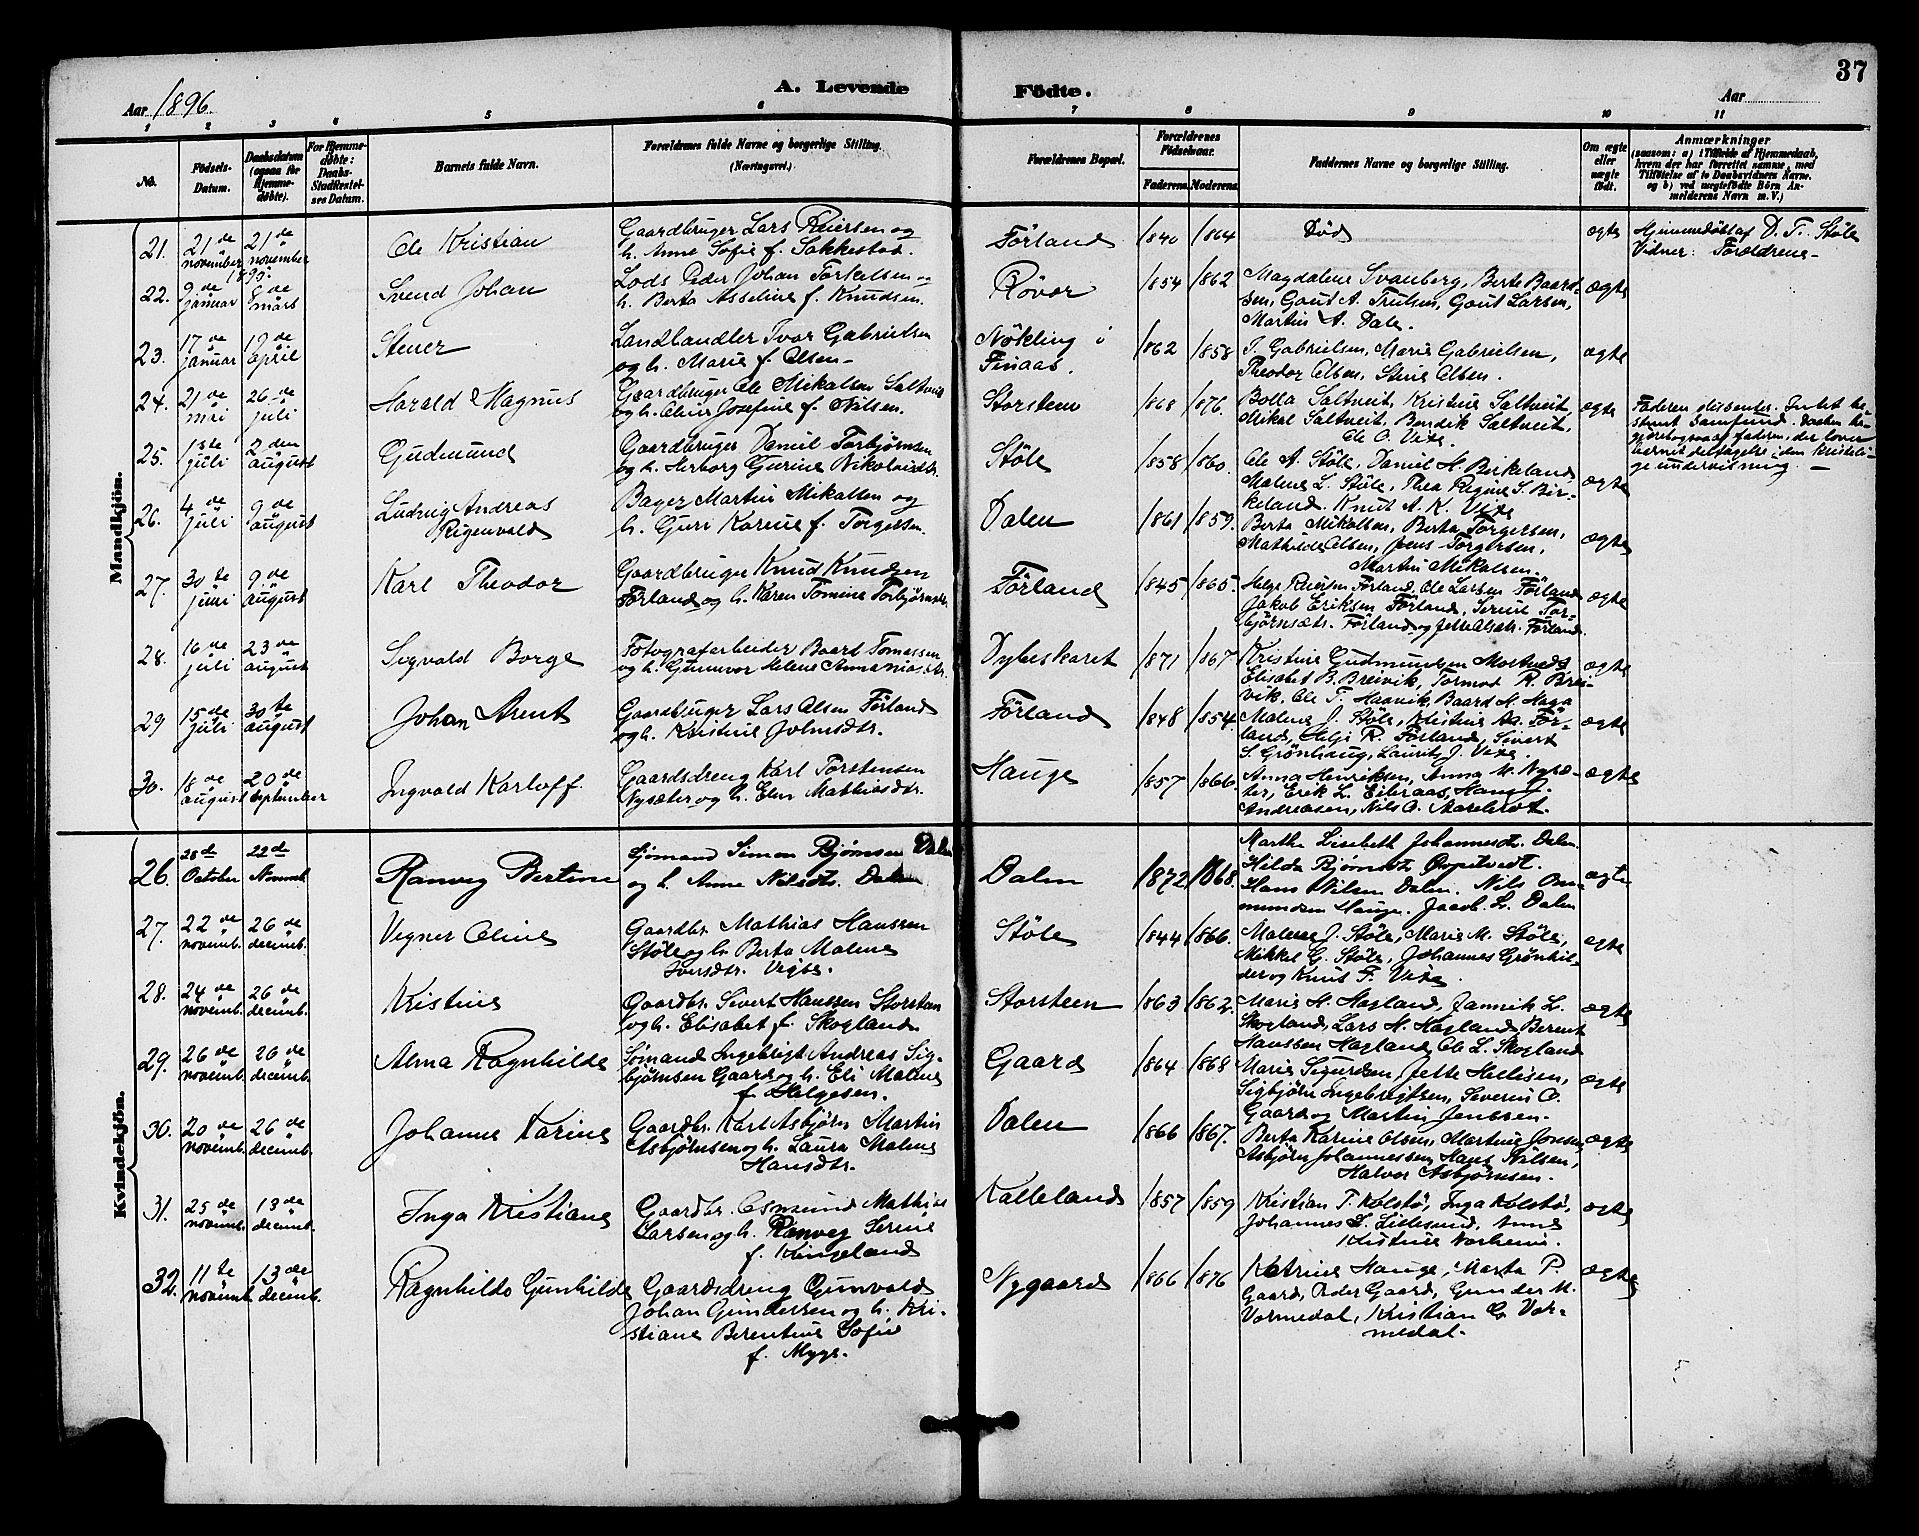 37
Aar 1896.
A. Levende Födte.
Aar
1 2 3 4 5 6 7 8 9 10 11
No.
Födsels-Datum.
Daabsdatum (ogsaa for Hjemme-döbte).
For Hjemme-döbte: Daabs-Stadfæstel-ses Datum.
Barnets fulde Navn.
Forældrenes fulde Navne og borgerlige Stilling. (Næringsvei.)
Forældrenes Bopæl.
Forældrenes Födselsaar.
Faderens. Moderens.
Faddernes Navne og borgerlige Stilling.
Om ægte eller uægte födt.
Anmærkninger
(saasom: a) i Tilfælde af Hjemmedaab,
hvem der har forrettet samme, med
Tilföielse af to Daabsvidners Navne,
og b) ved uægtefödte Börn An-
melderens Navn m. V.)
Mandkjön.
21. 21de november 21de november Ole Kristian
Gaardbruger Lars Reiersen og
h. Anne Sofie f. Sakkestad.
Förland 1840 1864 Död ægte
Hjemmedöbt af D. T. Stöle
Vidner: Forældrene-
1895.
22. 9de januar 8de mars Svend Johan
Lods Peder Johan Torkelsen og
h. Berta Asseline f. Knudsen.
Rövær 1854 1862
Magdalene Svanberg, Berte Baard-
sen, Gaut A. Trulsen, Gaut Larsen,
Martin A. Dale.
ægte
23. 17de januar 19de april Stener
Landhandler Ivar Gabrielsen
og h. Marie f. Olsen-
Nökling i
Finaas.
1862 1858
T. Gabrielsen, Marie Gabrielsen,
Theodor Olsen, Stine Olsen.
ægte
24. 21de mai 26de juli Harald Magnus
Gaardbruger Ole Mikalsen Saltveit
og h. Oline Josefine f. Nilsen.
Storsteen 1868 1876.
Bolla Saltveit, Kristine Saltveit
Mikal Saltveit, Bendik Saltveit,
Ole O. Vixe.
ægte
Faderen dissenter. Intet be-
stemt samfund. Daaben be-
gjæres ogsaa af faderen, der lover
hermit deltagelse i den kristeli-
ge undervisning. -
25. 1ste juli 2den august Gudmund
Gaardbruger Daniel Torbjörnsen
og h. Herborg Gurine Nikolaidtr.
Stöle 1858 1860.
Ole A. Stöle, Daniel H. Birkeland
Malene L. Stöle, Thea Regine S. Bir-
keland. Knut A. K. Vixe
ægte
26. 4de juli 9de august Ludvig Andreas
Rigenvald
Bager Martin Mikalsen og
h. Guri Karine f. Torgersen.
Dalen 1861 1859.
Berta Mikalsen, Berta Torgersen,
Mathilde Olsen, Jens Torgersen,
Martin Mikalsen.
ægte
27. 30te juni 9de august Karl Theodor
Gaardbruger Knud Knudsen
Förland og h. Karen Tomine Torbjörnsdtr.
Förland 1845 1865.
Helge Reiersen Förland, Ole Larsen Förland
Jakob Eriksen Förland, Serine Tor-
björnsdtr. Förland og Jette Olsdtr. Förland.
ægte
28. 16de juli 23de august Sigvald Borge
Fotografarbeider Baard Tomassen
og h. Gunnvor Helene Annaniasdtr.
Dybeskaret 1871 1867.
Kristine Gudmundsen Mostveds
Elisabet B. Breivik, Tormod R. Brei-
vik, Ole T. Haavik, Baard H. Haga
ægte
29 15de juli 30te august Johan Arent
Gaardbruger Lars Olsen Förland
og h. Kristine Johnsdtr.
Förland 1848 1854.
Malene J. Stöle, Kristine Aa. För-
land, Helje R. Förland, Sivert
S. Grönhaug, Laurits J. Vixe
ægte
30. 18de august 20de september Ingvald Karloff.
Gaardsdreng Karl Torstensen
Nysæter og h. Elen Mathiasdtr.
Hauge 1857 1866.
Anna Henriksen, Anna M. Nysæ-
ter, Erik L. Eileraas, Hans J.
Andreasen, Nils O. Aarebrot.
ægte
Kvindekjön.
26. 28de October 22de Novemb. Ranveg Bertine
Sjömand Simon Bjørnsen Dalen
og h. Anne Nilsdtr. Dalen
Dalen 1872 1868.
Marthe Lisebeth Johannesdt. Dalen.
Hilda Bjørnsdt. Qvitvedt.
Hans Nilsen Dalen. Nils Om-
mundsen Hauge. Jacob L. Dalen
ægte
27. 22de novemb. 26de decemb. Vigner Oline
Gaardbr. Mathias Hanssen
Stöle og h. Berta Malene
Iversdtr. Vigbe.
Stöle 1844 1866.
Malene J. Stöle, Marie M. Stöle,
Mikkel G. Stöle, Johannes Grönhil-
der og Knut F. Vixe
ægte
28. 24de novemb. 26de decemb. Kristine
Gaardbr. Sivert Hanssen Storsteen
og h. Elisabet f. Skogland
Storsteen 1863 1862.
Marie H. Hagland, Jannik L.
Skogland, Lars H. Hagland, Berent
Hanssen Hagland, Ole L. Skogland
ægte
29. 26de novemb. 26de decemb. Alma Ragnhilde
Sömand Ingebrigt Andreas Sig-
björnsen Gaard og h. Eli Malene
f. Helgesen.
Gaard 1864 1868
Marie Sigurdsen, Jette Hellisen,
Sigbjörn Ingebrigtsen, Severin O.
Gaard og Martin Jenssen.
ægte
30. 20de novemb. 26de decemb. Johanne Karine
Gaardbr. Karl Asbjörn Martin
Asbjörnsen og h. Laura Malene
Hansdtr.
Dalen 1866 1867.
Berta Karine Olsen, Martine Jonsen,
Asbjörn Johannessen, Hans Nilsen,
Halvor Asbjörnsen.
ægte
31. 25de novemb. 13de decemb. Inga Kristiane
Gaardbr. Osmund Mathias
Larsen og h. Ranveg Serine
f. Kingeland
Kalleland 1857 1859
Kristian T. Kolstö, Inga Kolstö,
Johannes L. Lillesund, Anne
Kristine Norheim.
ægte
32. 11te novemb. 13de decemb. Ragnhilde Gunhilde
Gaardsdreng Gunvald
Johan Gundersen og h. Kri-
stiane Berentine Sofie
f. Myge.
Nygaard 1866 1876
Katrine Hauge, Marta P.
Gaard, Peder Gaard, Gunder M.
Vormedal, Kristian G. Vor-
medal.
ægte